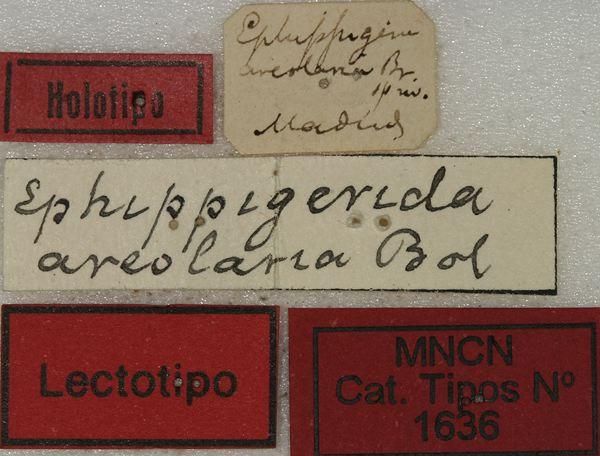 Holotipo
Ephippigera
areolaria Br.
Madrid
Ephippigerida
areolaria Bol
Lectotipo
MNCN
Cat. Tipos Nº
1636